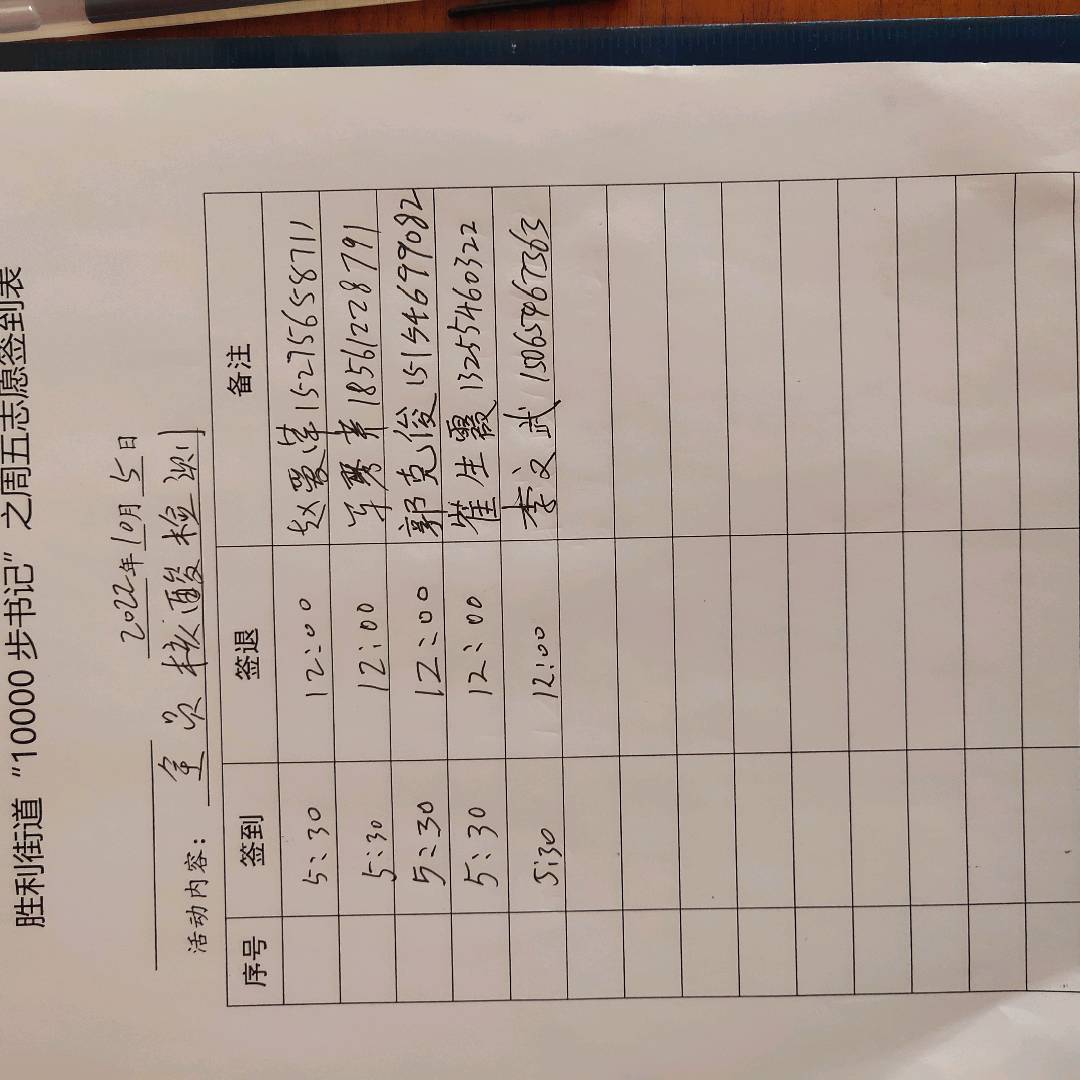 胜利街道“10000步书记”之周五志愿签到表
2022年10月5日
活动内容： 全员核酸检测
序号 签到 签退 备注
5:30 12:00 赵 15275658711
5:30 12:00 车琴 18561228791
5:30 12:00 郭克俊 15154699082
5:30 12:00 崔生霞 13255460322
5:30 12:00 李文武 15065467363